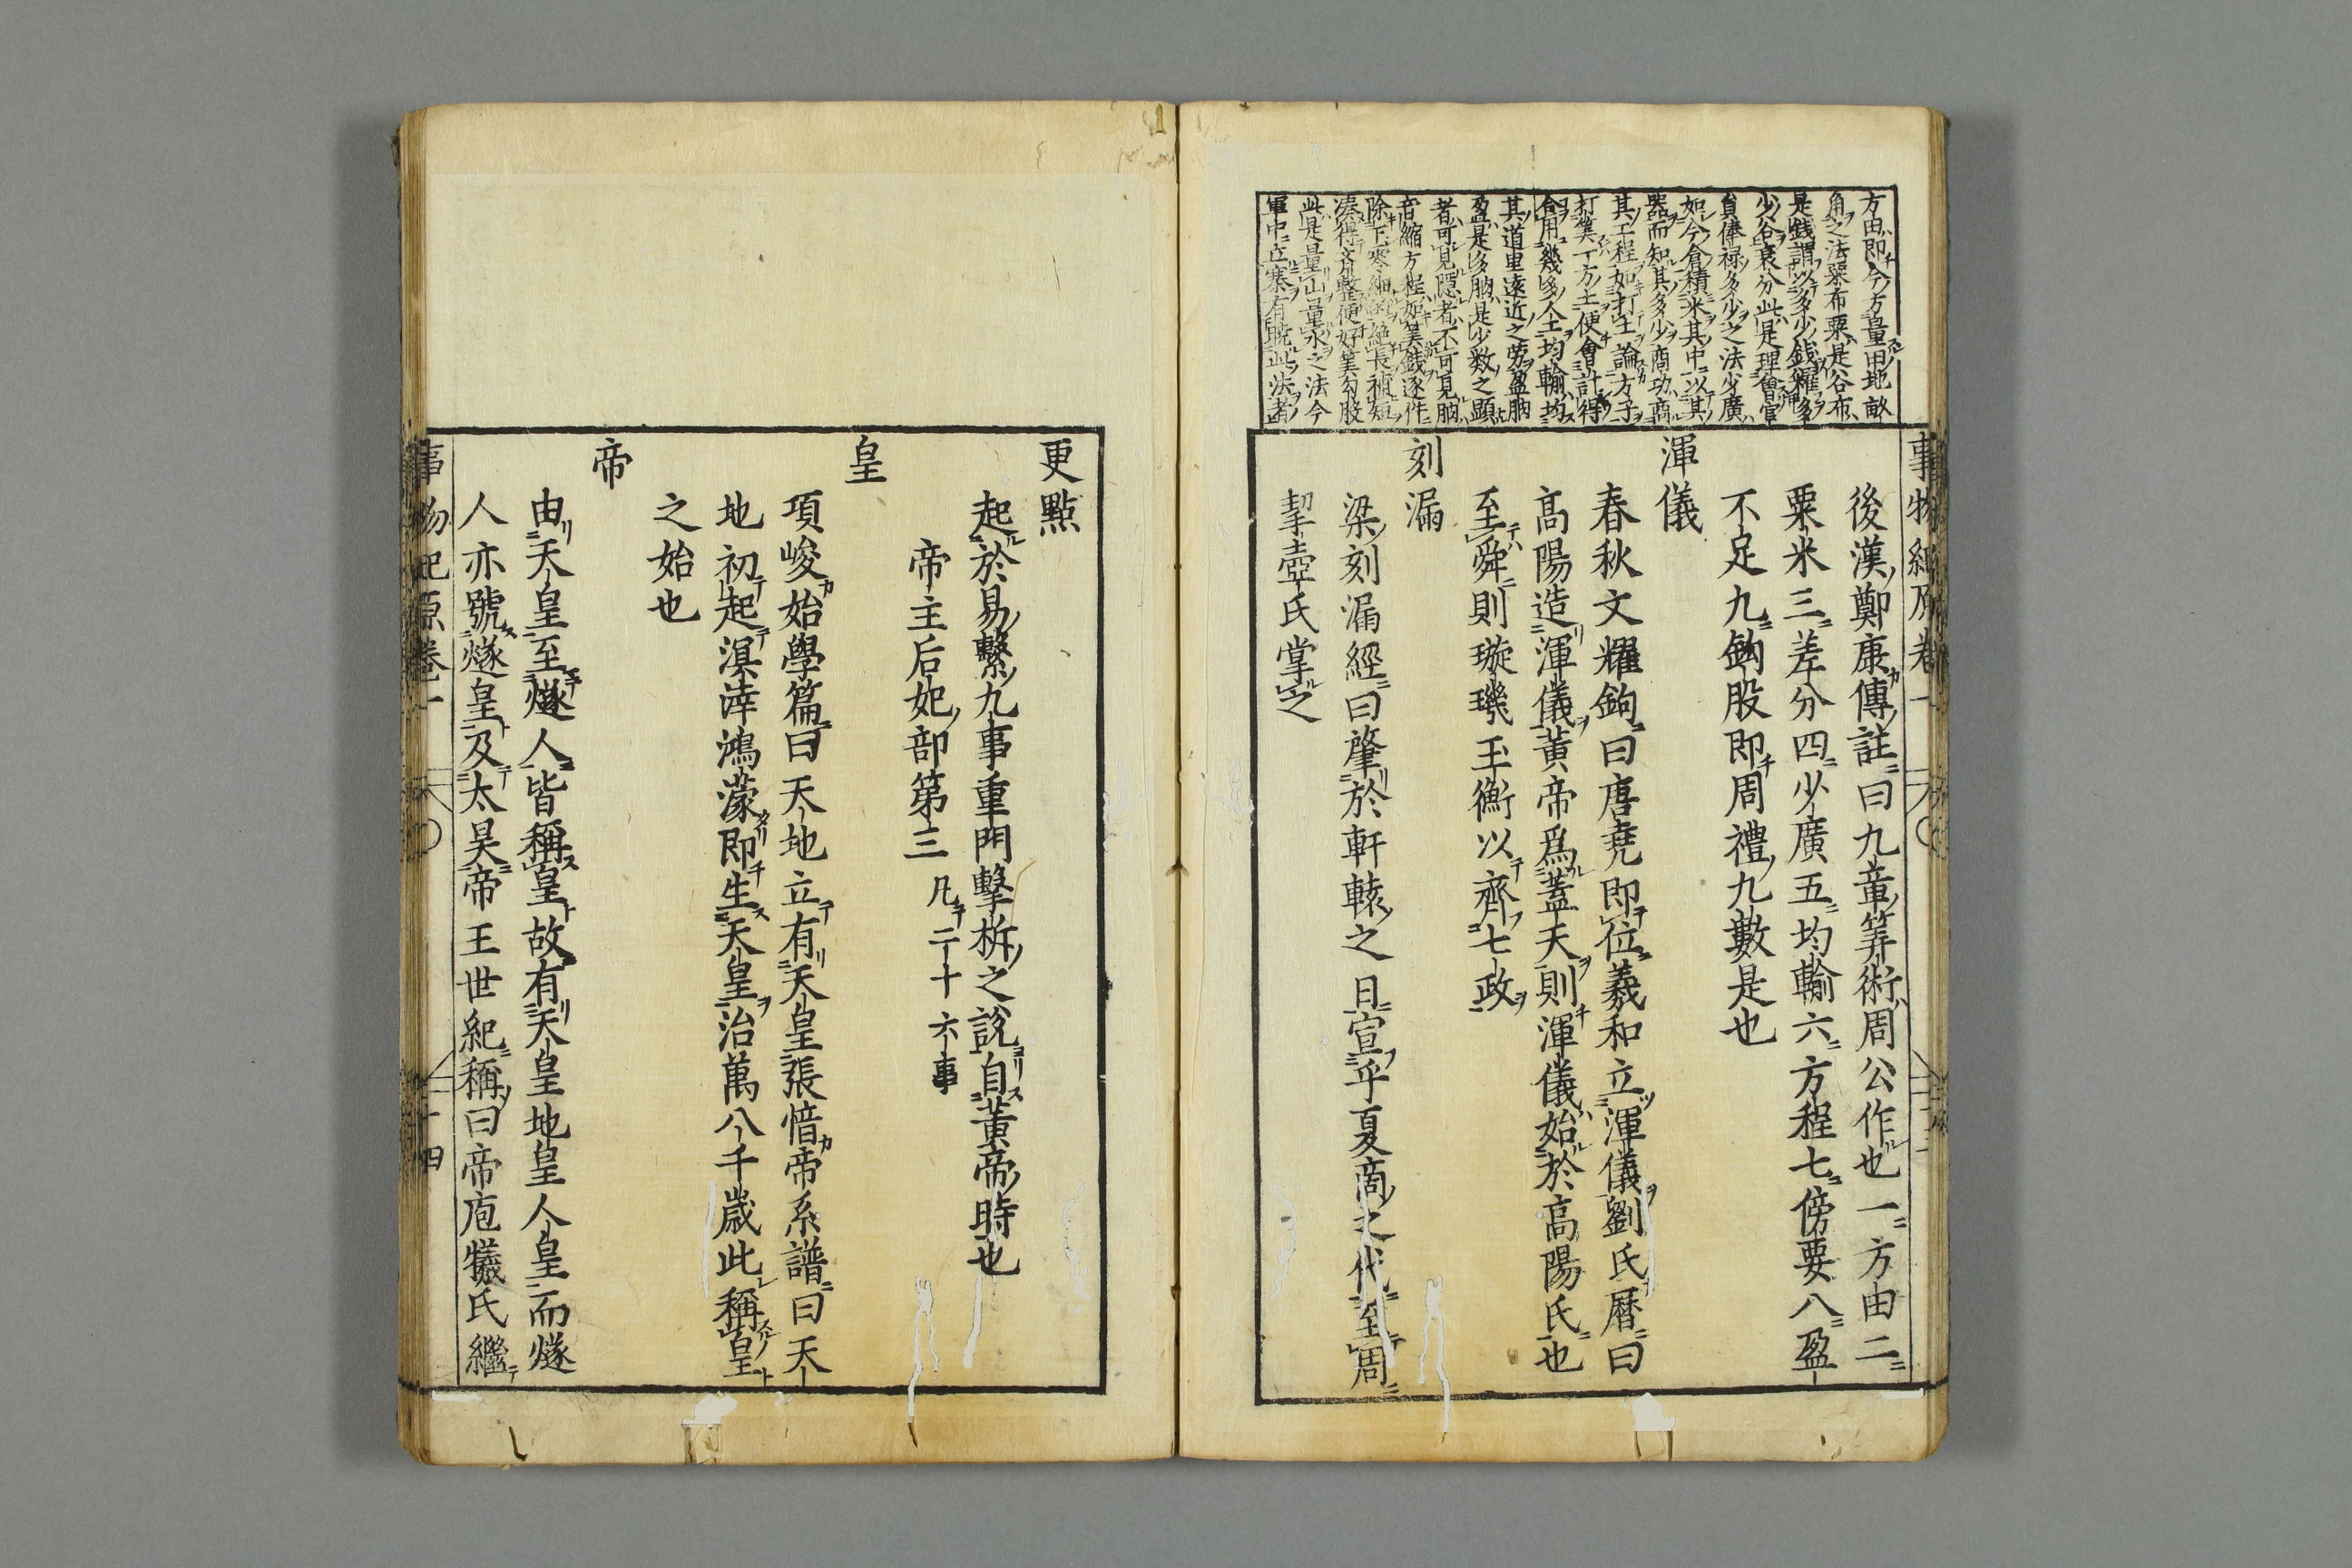 方田即今方量田地畝
角之法粟布粟是谷布
是錢謂以多少錢糴多
少谷衰分此是理會官
員俸禄多少之法少廣
如今倉積米其中以其
器而知其多少商功商
其工程如打土論方子
打筭丁方土便會計得
合用幾多人土均輸均
其道里遠近之勞盈朒
盈是多朒是少数之顯
者可見隱者不可見朒
音縮方程如筭錢逐件
除下零細絶長補短
湊得齊整便好筭勾股
此是量山量水之法今
軍中立寨有暁此法者
事物紀原卷一
後漢鄭康傳註曰九章筭術周公作也一方由二
粟米三差分四少廣五均輸六方程七傍要八盈
不足九鈎股即周禮九數是也
渾儀
春秋文耀鉤曰唐堯即位羲和立渾儀劉氏曆曰
高陽造渾儀黄帝爲蓋天則渾儀始於高陽氏也
至舜則璇璣玉衡以齊七政
刻漏
梁刻漏經曰肇於軒轅之日宣乎夏商之代至周
挈壺氏掌之
更點
起於易繫九事重門擊柝之説自黄帝時也
帝主后妃部第三 凡二十六事
皇
項峻始學篇曰天地立有天皇張愔帝系譜曰天
地初起溟涬鴻濛即生天皇治萬八千歳此稱皇
之始也
帝
由天皇至燧人皆稱皇故有天皇地皇人皇而燧
人亦號燧皇及太昊帝王世紀稱曰帝庖犧氏繼
事物紀原卷一 十四